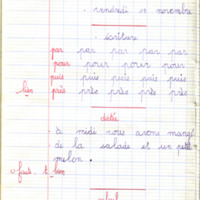 vendredi 12 novembre
écriture
par par par par par
pour pour pour pour
puis puis puis puis puis
liés près près près près près
dictée
à midi nous avons mangé
de la salade et un petit
melon.
0 faute. t. bien
calcul